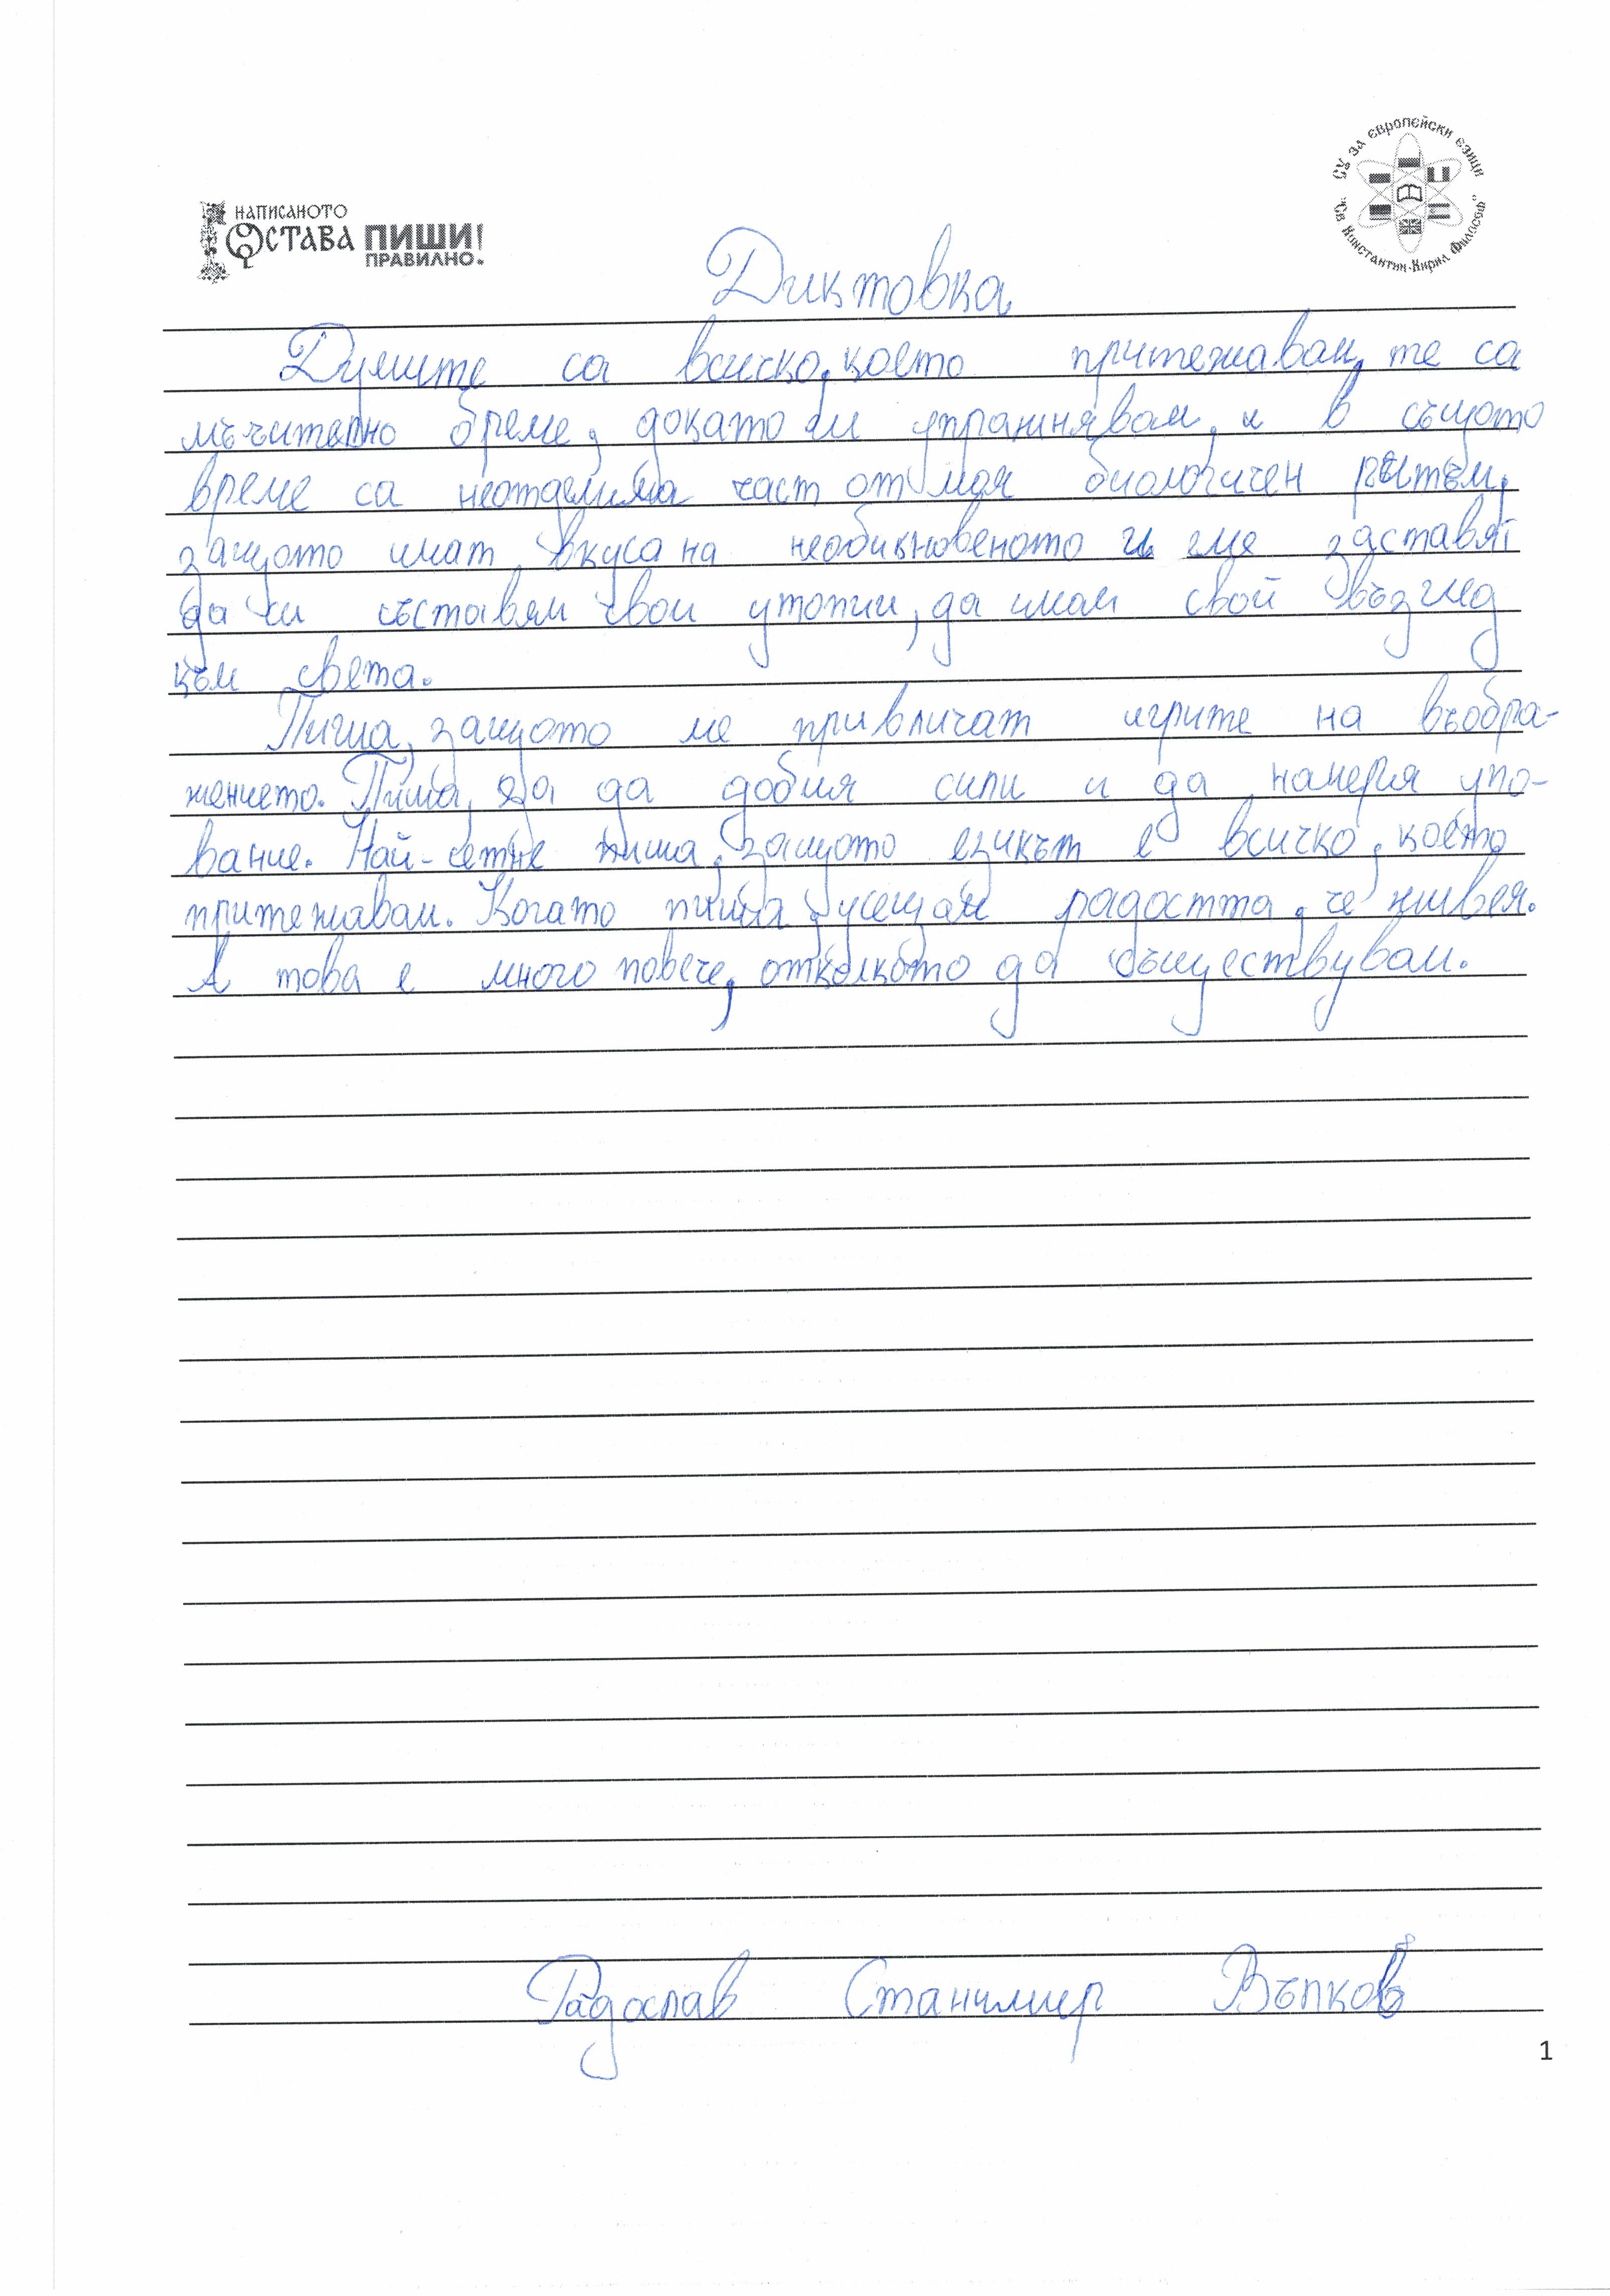 НАПИСАНОТО
ОСТАВА ПИШИ!
ПРАВИЛНО.
СУ за европейски езици
"Св. Константин-Кирил Философ"
Диктовка
Думите са всичко, което притежавам, те са
мъчително бреме, докато ги упражнявам, и в същото
време са неотделима част от моя биологичен ритъм,
защото имат вкуса на необикновеното и ме заставят
да си съставям свои утопии, да имам свой възглед
към света.
Пиша, защото ме привличат игрите на въобра-
жението. Пиша, за да добия сили и да намеря упо-
вание. Най-сетне пиша, защото езикът е всичко, което
притежавам. Когато пиша, усещам радостта, че живея.
А това е много повече, отколкото да съществувам.
Радослав Станимир Вълков
1